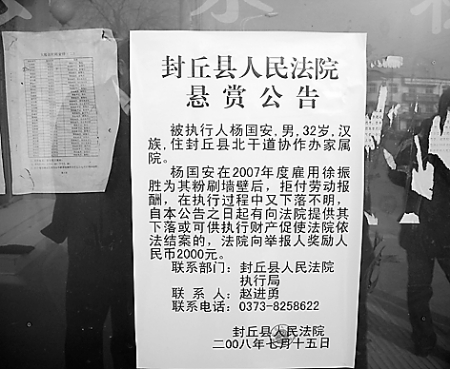 封丘县人民法院
悬赏公告
被执行人杨国安,男,32岁,汉
族,住封丘县北干道协作办家属
院。
杨国安在2007年度雇用徐振
胜为其粉刷墙壁后,拒付劳动报
酬,在执行过程中又下落不明,
自本公告之日起有向法院提供其
下落或可供执行财产促使法院依
法结案的,法院向举报人奖励人
民币2000元。
联系部门:封丘县人民法院
执行局
联系人:赵进勇
联系电话:0373-8258622
封丘县人民法院
二00八年七月十五日